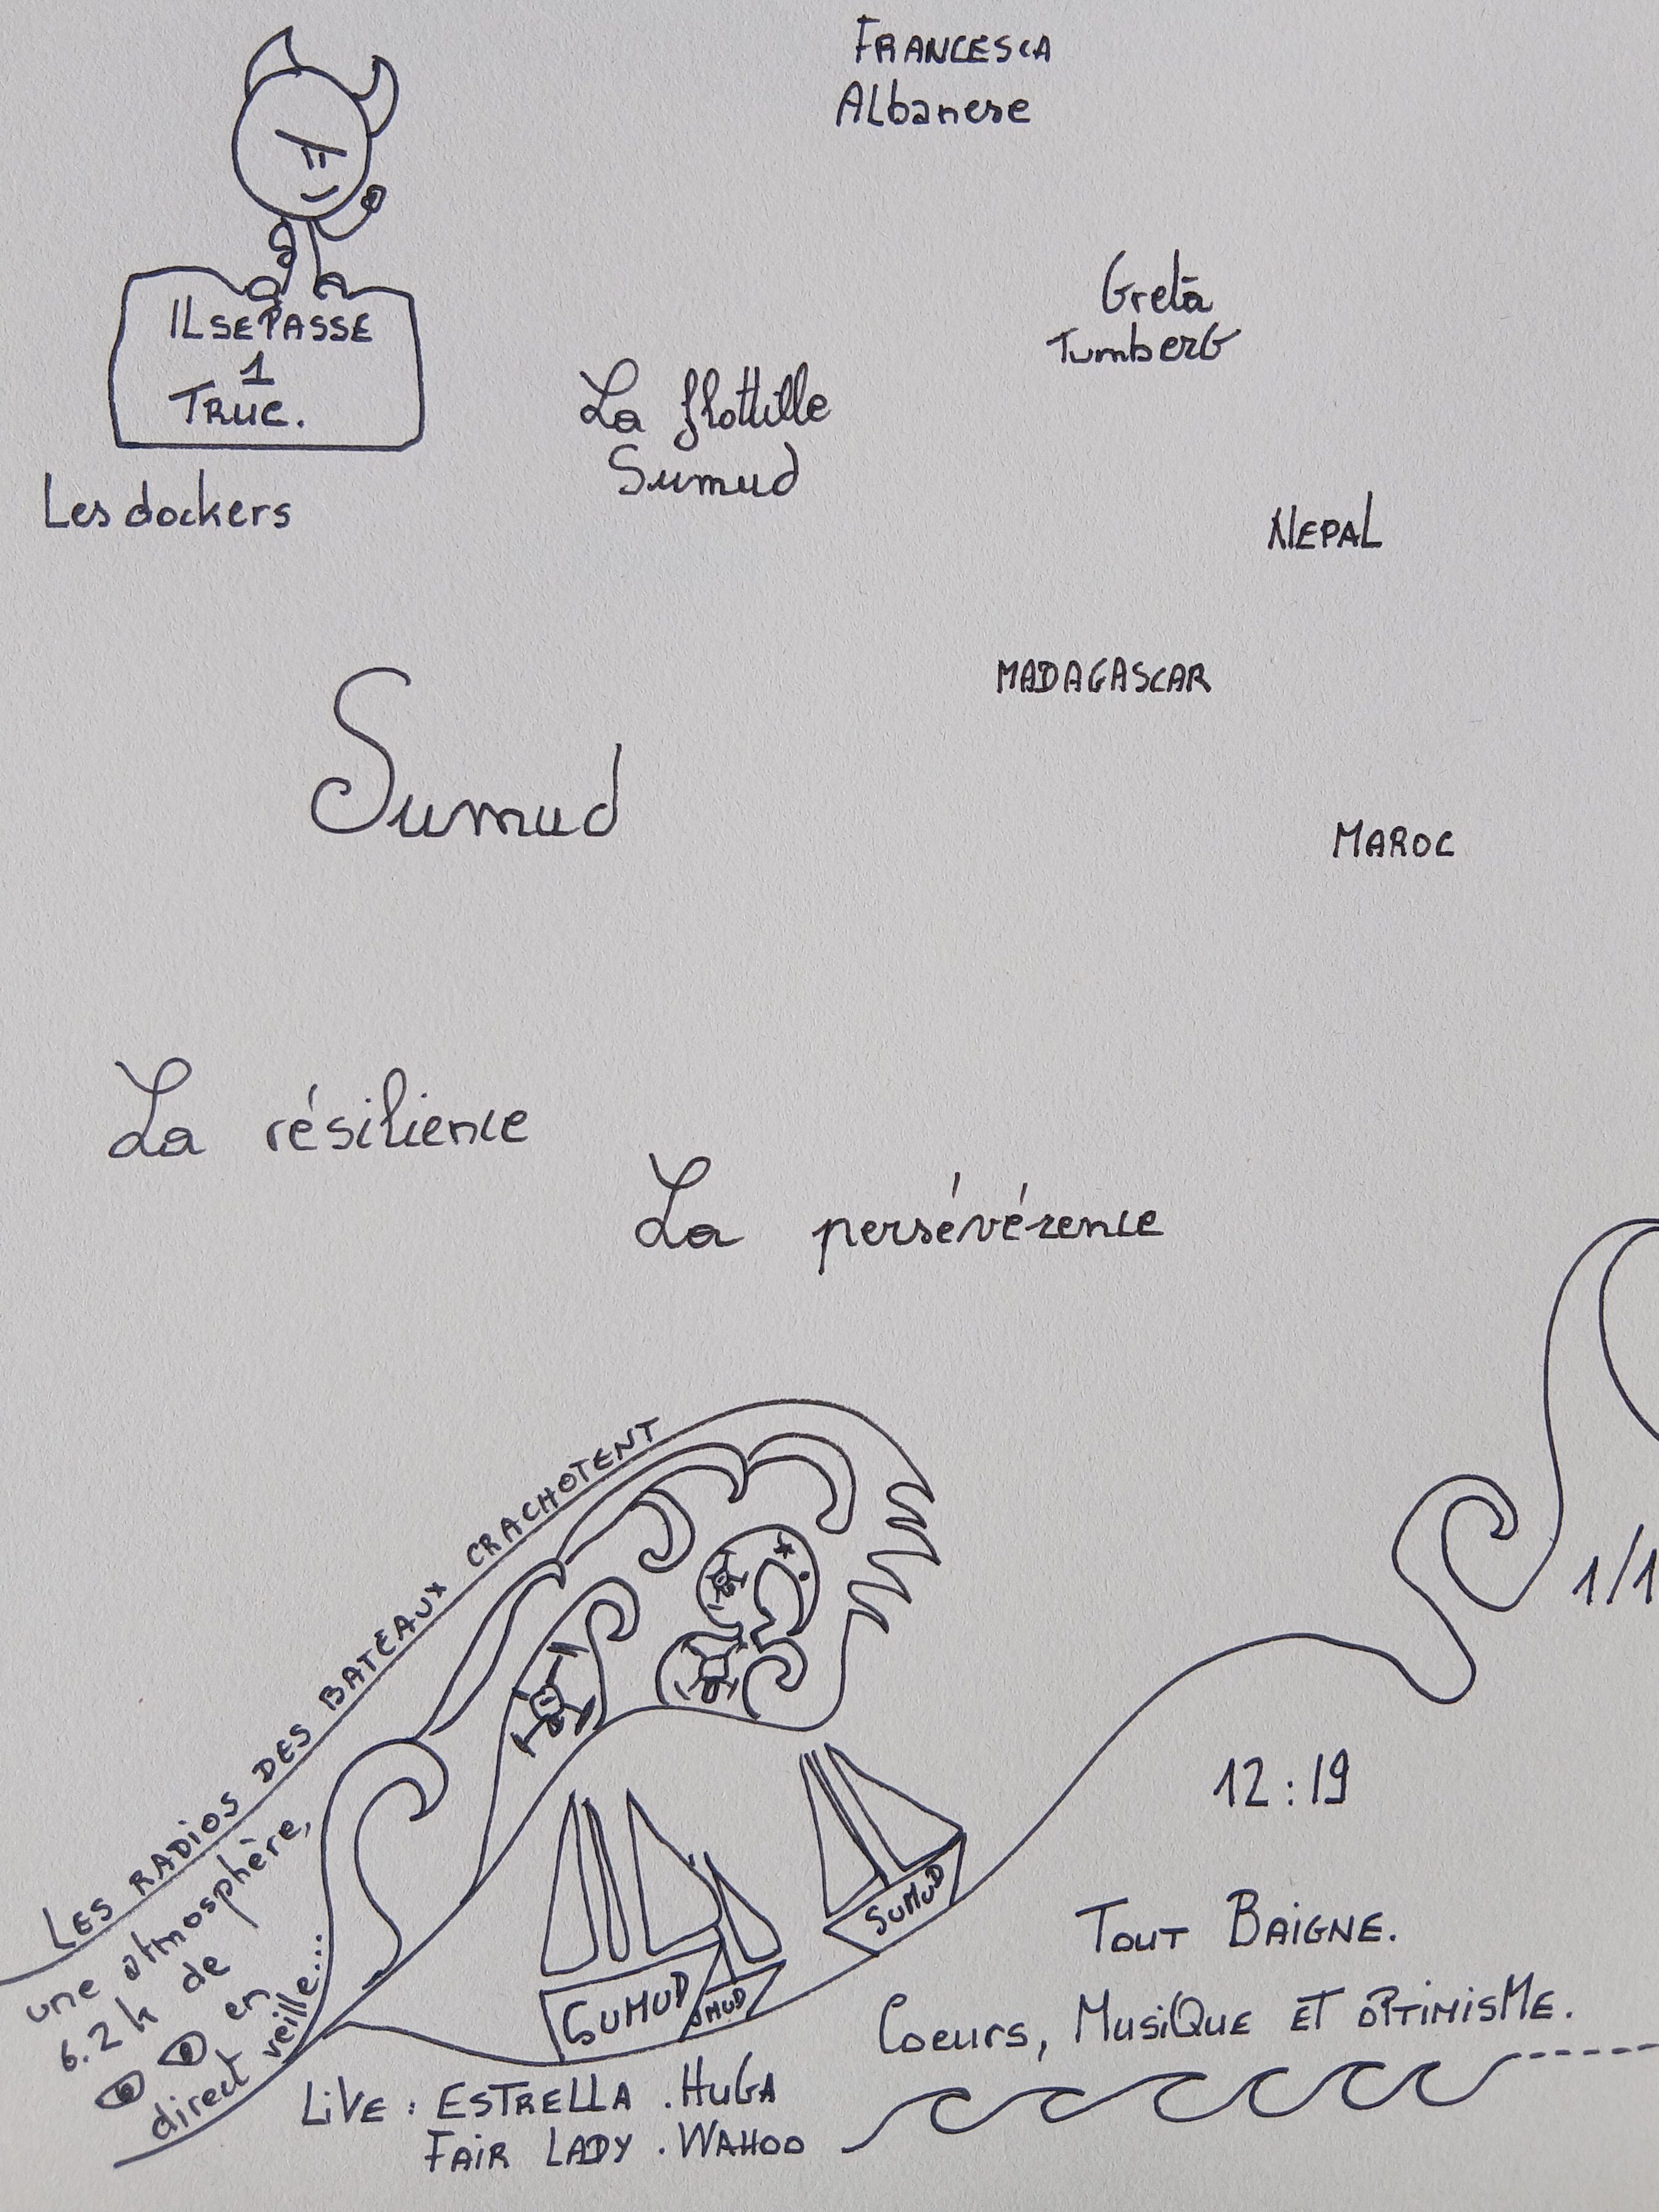 FRANCESCA
Albanese
IL SE PASSE
1
TRUC.
Greta
TumberG
La flottille
Sumud
Les dockers
NEPAL
MADAGASCAR
Sumud
MAROC
La résilience
La persévérence
LES RADIOS DES BATEAUX CRACHOTENT
une atmosphère,
6.2 k de
en
direct veille...
1/1
12:19
SUMUD
SUMUD
UMUD
TOUT BAIGNE.
Coeurs, MusiQUE ET OPTIMISME.
LIVE : ESTRELLA . HUGA
FAIR LADY . WAHOO